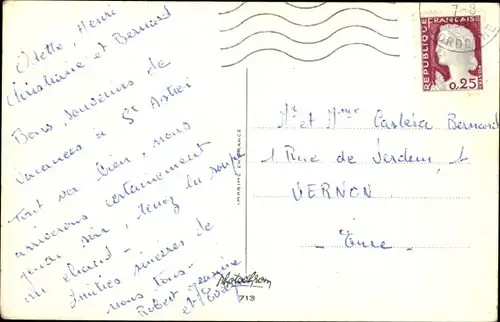 Odette, Henri
Christiane et Bernard
Bons souvenirs de
vacances à St Astier
Tout va bien, nous
arriverons certainement
jeudi soir, tenez la soupe
au chaud -
Amitiés sincères de
nous tous -
Robert
et
IMPRIMÉ EN FRANCE
Photochrom
713
7-8
DORDOGNE
REPUBLIQUE FRANÇAISE
0,25
Mr et Mme Castéra Bernard
1 Rue de Verdun, 1
VERNON
- Eure -